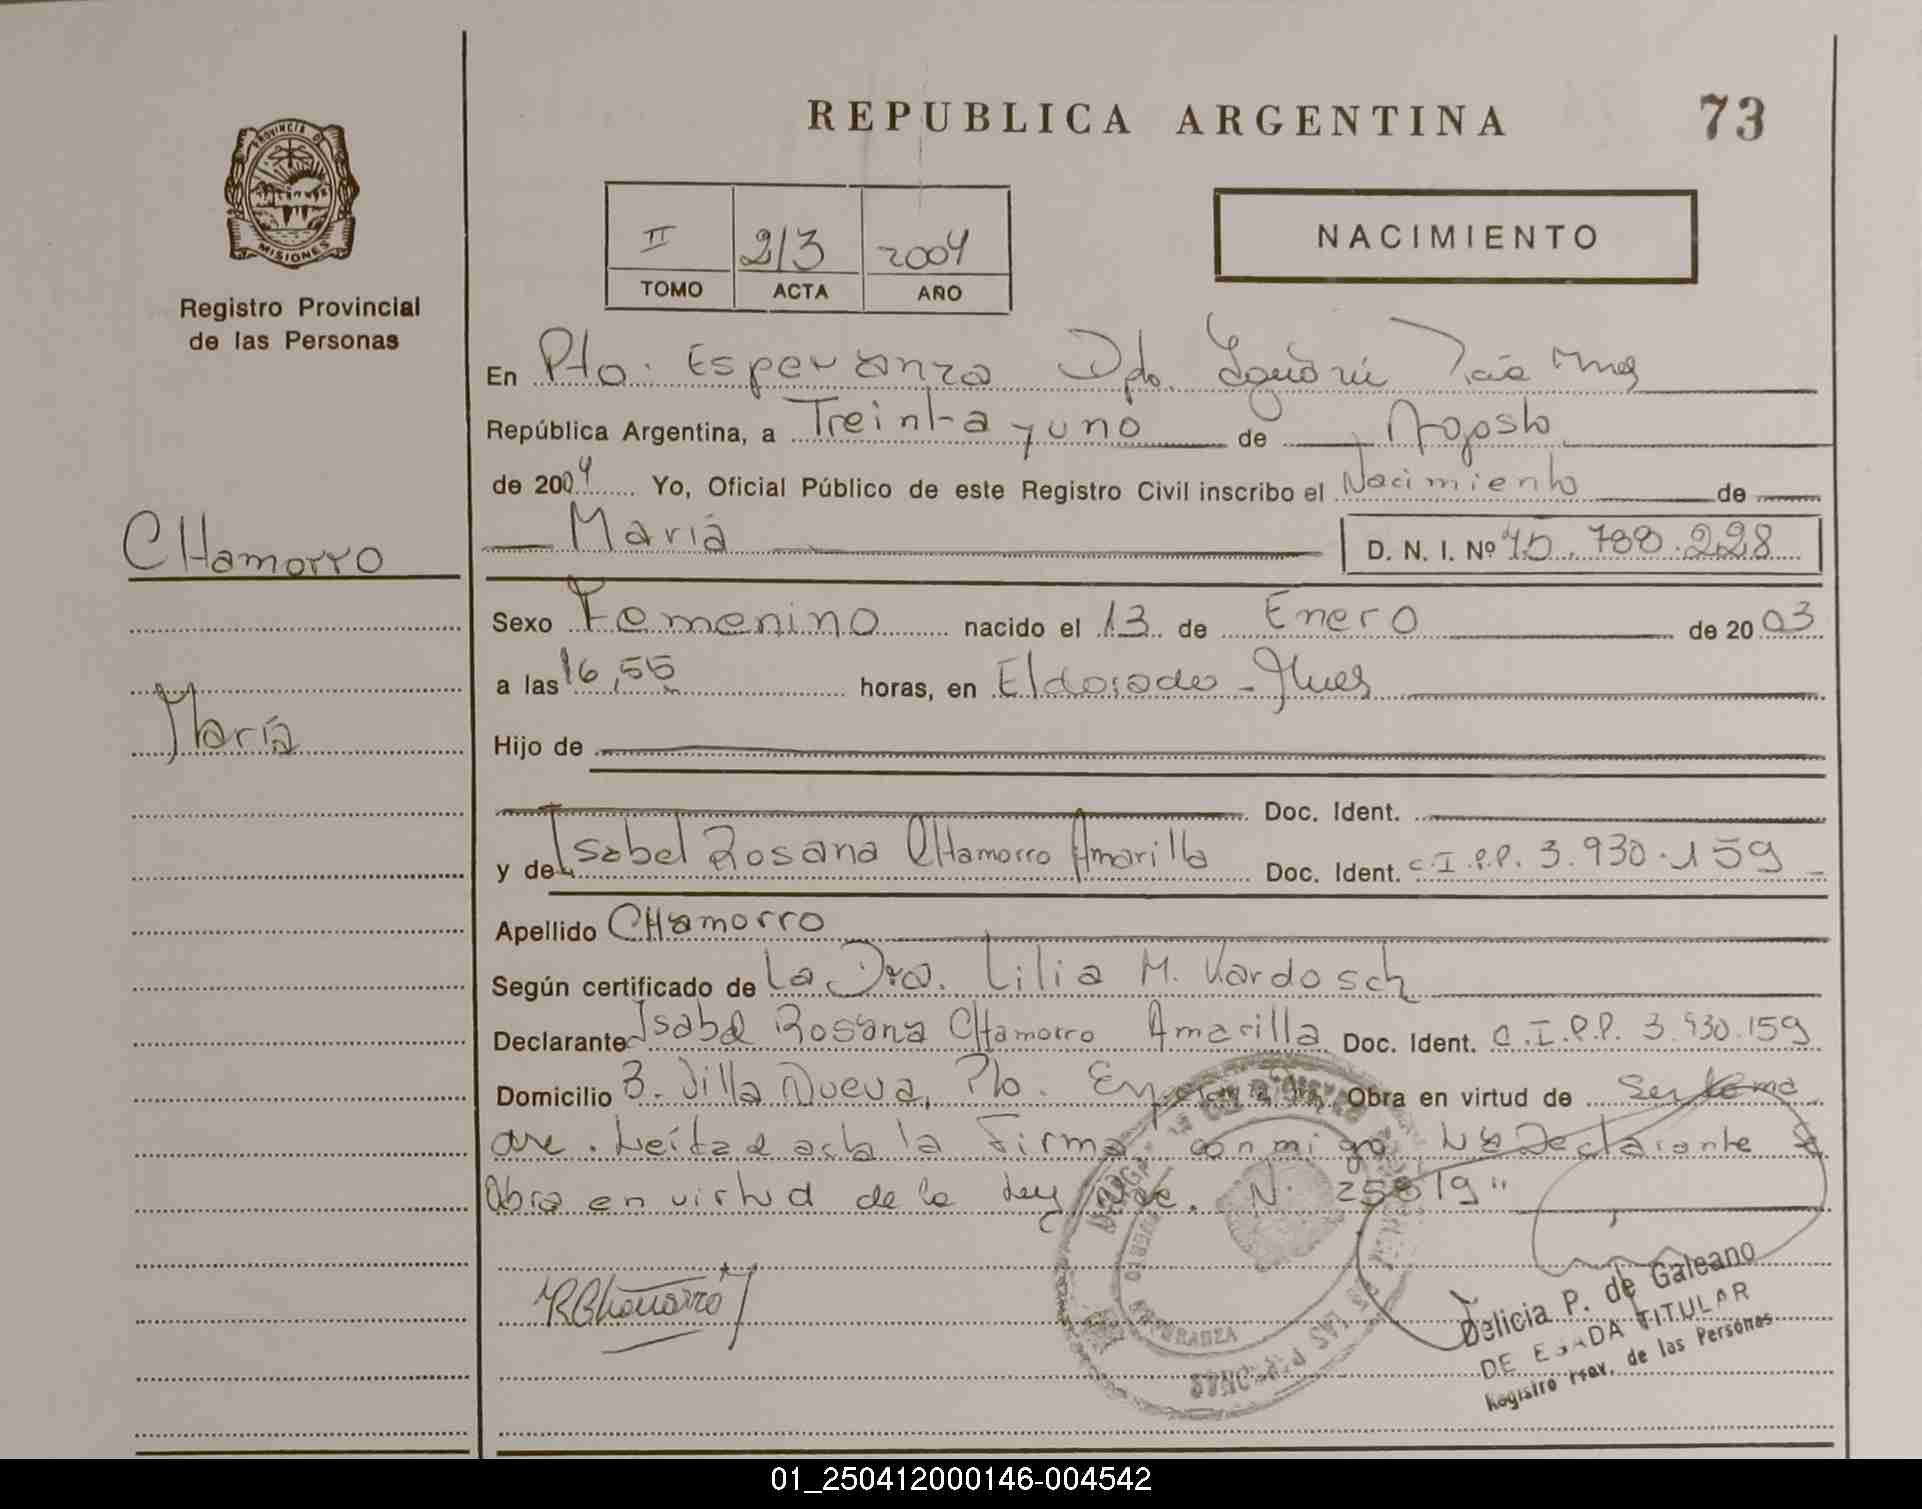 REPUBLICA ARGENTINA
73
PROVINCIA DE
MISIONES
Registro Provincial
de las Personas
II 213 2004
TOMO ACTA AÑO
NACIMIENTO
En Pto. Esperanza Dpto. Iguazú
República Argentina, a Treinta y uno de Agosto
de 2004 Yo, Oficial Público de este Registro Civil inscribo el Nacimiento de
María
D. N. I. Nº 45.788.228
CHamorro
María
Sexo Femenino nacido el 13 de Enero de 2003
a las 16,55 horas, en Eldorado - Mnes
Hijo de
Doc. Ident.
y de Isabel Rosana CHamorro Amarilla Doc. Ident. C.I.P.P. 3.930.159
Apellido CHamorro
Según certificado de La Dra. Lilia M. Kardosch
Declarante Isabel Rosana CHamorro Amarilla Doc. Ident. C.I.P.P. 3.930.159
Domicilio B. Villa Nueva, Pto. Esperanza Obra en virtud de ser la ma
dre. Leída el acta la Firma conmigo La Declarante
Obra en virtud de la Ley Nac. N. 25819"
Delicia P. de Galeano
DELEGADA TITULAR
Registro Prov. de las Personas
01_250412000146-004542